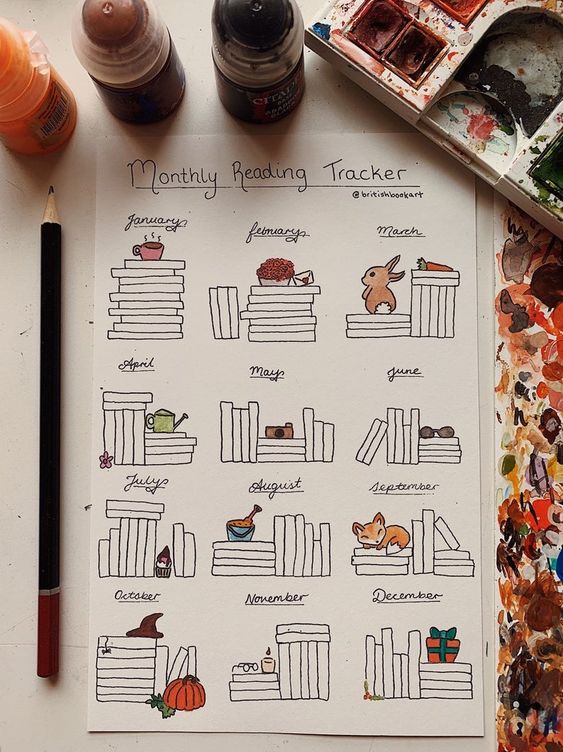 CITADEL
Monthly Reading Tracker
@britishbookart
January February March
April May June
July August September
October November December